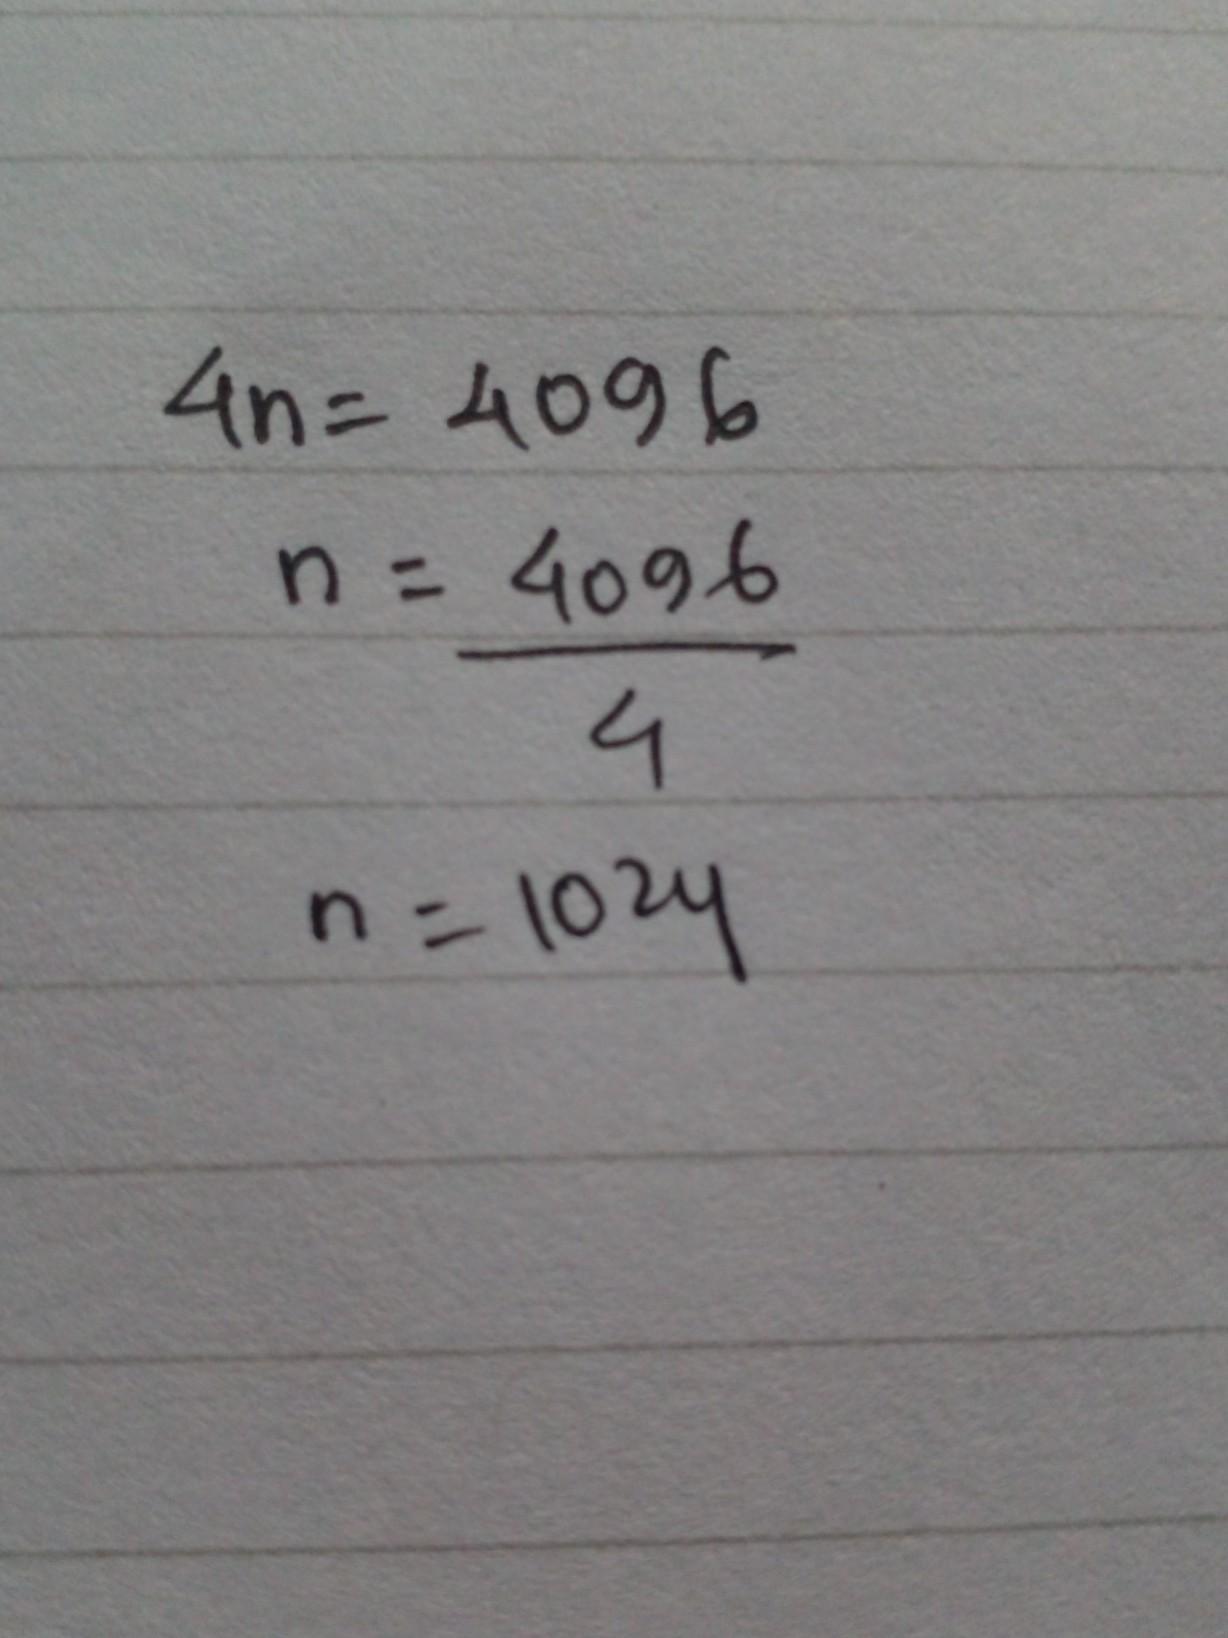 4n = 4096
n = 4096
4
n = 1024